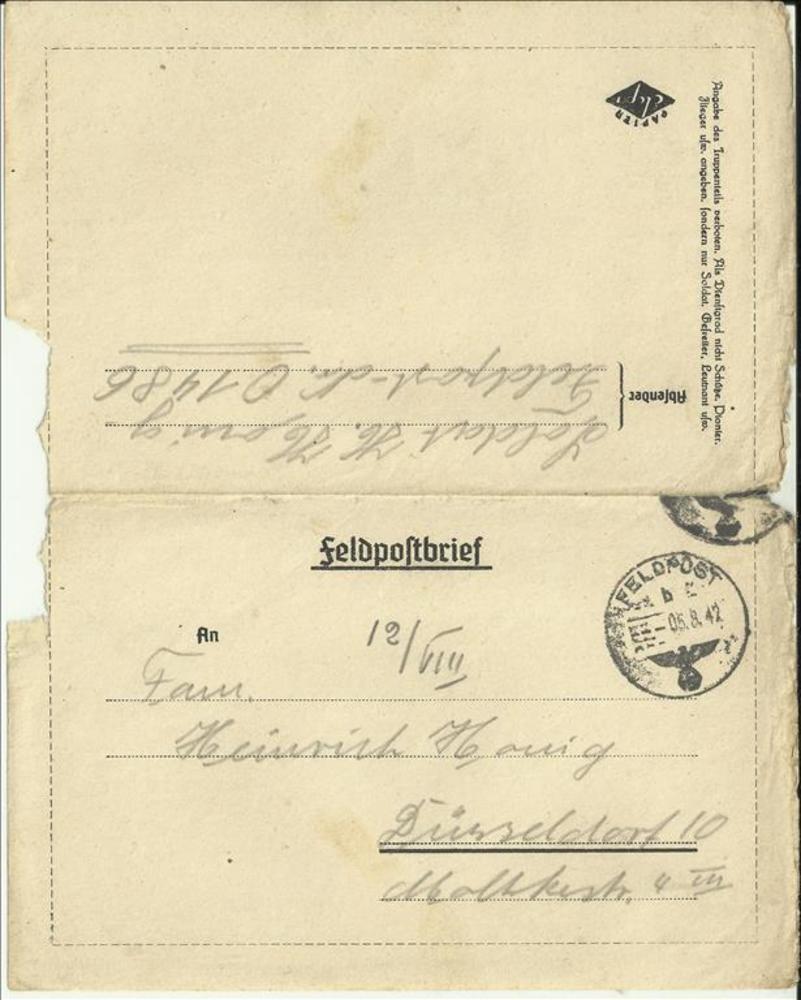 Angabe des Truppenteils verboten. Als Dienstgrad nicht Schütze, Pionier,
Flieger usw. angeben, sondern nur Soldat, Gefreiter, Leutnant usw.
PAPIER
Absender
Soldat H. Honig
Feldpost-Nr. 01486
Feldpostbrief
FELDPOST
b
06.8.42
An
12/VIII
Fam.
Heinrich Honig
Düsseldorf 10
Moltkestr. 4 III